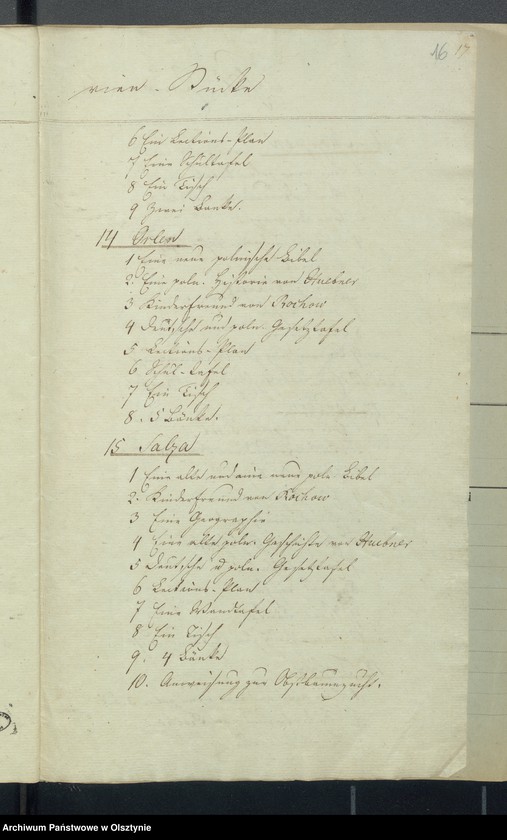 16 17
Stücke
6 Ein Lections-Plan
7 Eine Schultafel
8 Ein Tisch
9 Zwei Bänke.
14 Orlen
1 Eine neue polnische Bibel
2. Eine poln. Historie von Huebner
3 Kinderfreund von Rochow
4 Deutsche und poln. Gesetztafel
5 Lections-Plan
6 Schul-tafel
7 Ein Tisch
8. 5 Bänke.
15 Salza
1 Eine alte und eine neue poln. Bibel
2. Kinderfreund von Rochow
3 Eine Geographie
4 Eine alte poln. Geschichte von Huebner
5 Deutsche u poln. Gesetztafel
6 Lections-Plan
7 Eine Wandtafel
8 Ein Tisch
9. 4 Bänke
10. Anweisung zur Obstbaumzucht.
Archiwum Państwowe w Olsztynie